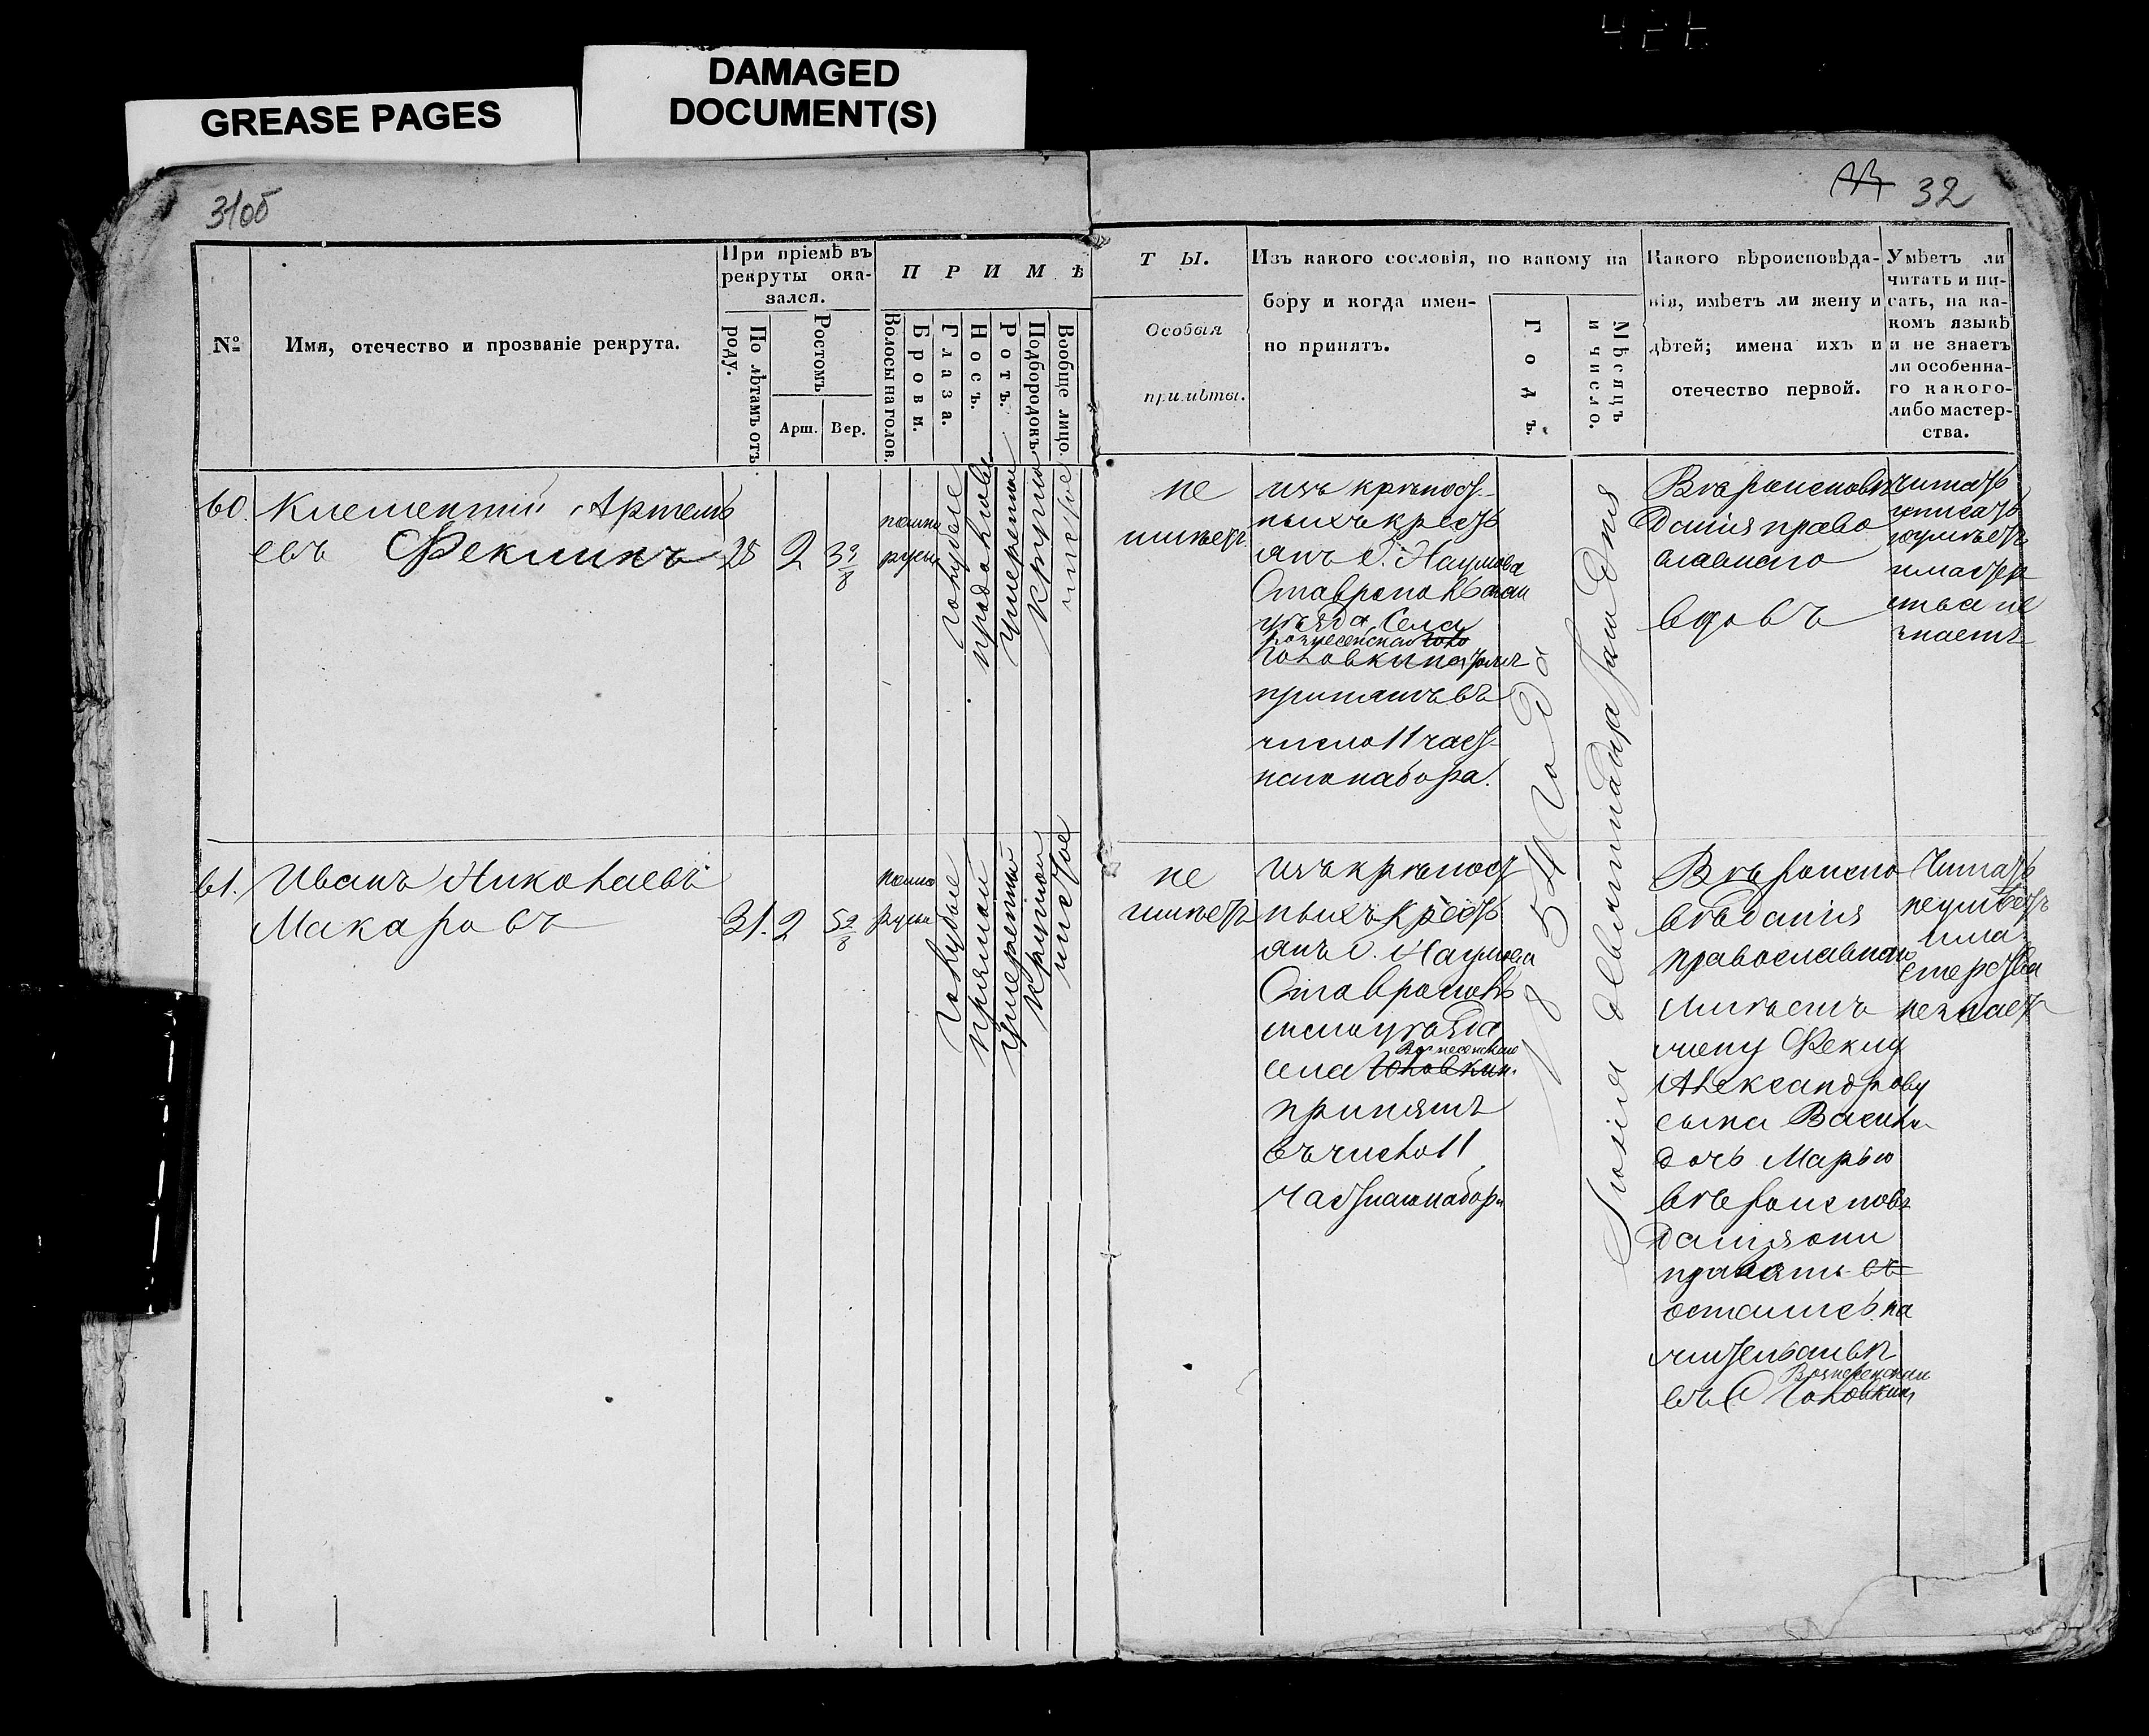 GREASE PAGES
DAMAGED
DOCUMENT(S)
31об
32
№
Имя, отечество и прозваніе рекрута.
При пріемѣ въ
рекруты ока-
зался.
По лѣтамъ отъ
роду.
Ростомъ
Арш.
Вер.
ПРИМѢ
Волосы на голов.
Брови.
Глаза.
Носъ.
Ротъ.
Подбородокъ
Вообще лицо.
ТЫ.
Особыя
примѣты.
Изъ какого сословія, по какому на
бору и когда имен-
но принятъ.
Годъ.
Мѣсяцъ
и число.
Какого вѣроисповѣда-
нія, имѣетъ ли жену и
дѣтей; имена ихъ и
отечество первой.
Умѣетъ ли
читать и пи-
сать, на ка-
комъ языкѣ
и не знаетъ
ли особенна-
го какого-
либо мастер-
ства.
60.
Клементій Артемь
евъ Феклинъ
28
2
3 2/8
темно
русые
голубые
продолговат
умеренной
круглой
чистое
не
имеетъ
изъ крепост-
ныхъ кресть
янъ Г. Наумова
Ставропольскаи
уѣзда Села
Вознесенская
Головкина тожъ
принятъ въ
число 11 част-
наго набора.
1854 Года
Іюня двенатцатаго Дня
Вѣроисповѣ
данія право
славнаго
вдовъ
читать
и писать
неумѣетъ
и мастер
ства не
знаетъ
61.
Иванъ Николаевъ
Макаровъ
31.
2
5 2/8
темно
русые
голубые
прямой
умеренный
круглой
чистое
не
имѣетъ
изъ крѣпост
ныхъ кресть
янъ Г. Наумова
Ставрополь
скаго уѣзда
Вознесенское
села Головкин.
принятъ
въ число 11
частнаго набора
Вѣроиспо
вѣданія
православнаго
имѣетъ
жену Феклу
Александрову
сына Василь
дочь Марью
вѣроисповѣ
данія они
остались на
жительствѣ
Вознесенскаи
въ С Головкин
Читать
неумѣетъ
и ма
стерства
незнает